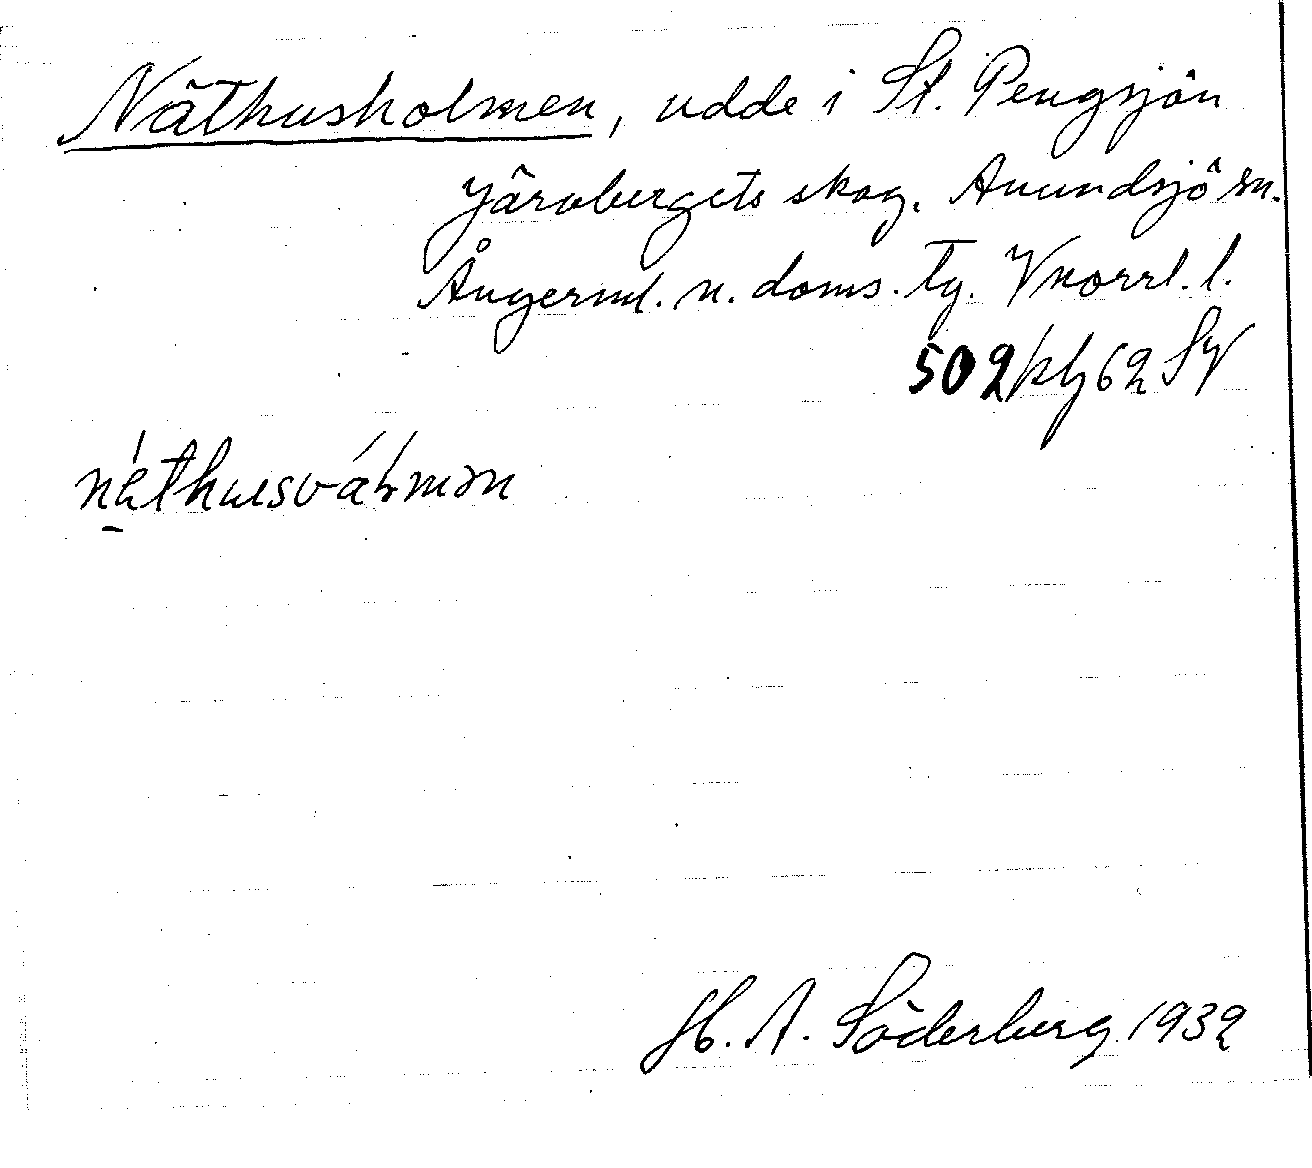 Näthusholmen, udde i St. Pengsjön
Järvbergets skog. Anundsjö sn.
Ångerml. n. doms. tg. Vnorrl. l.
502
H. A. Söderberg 1932